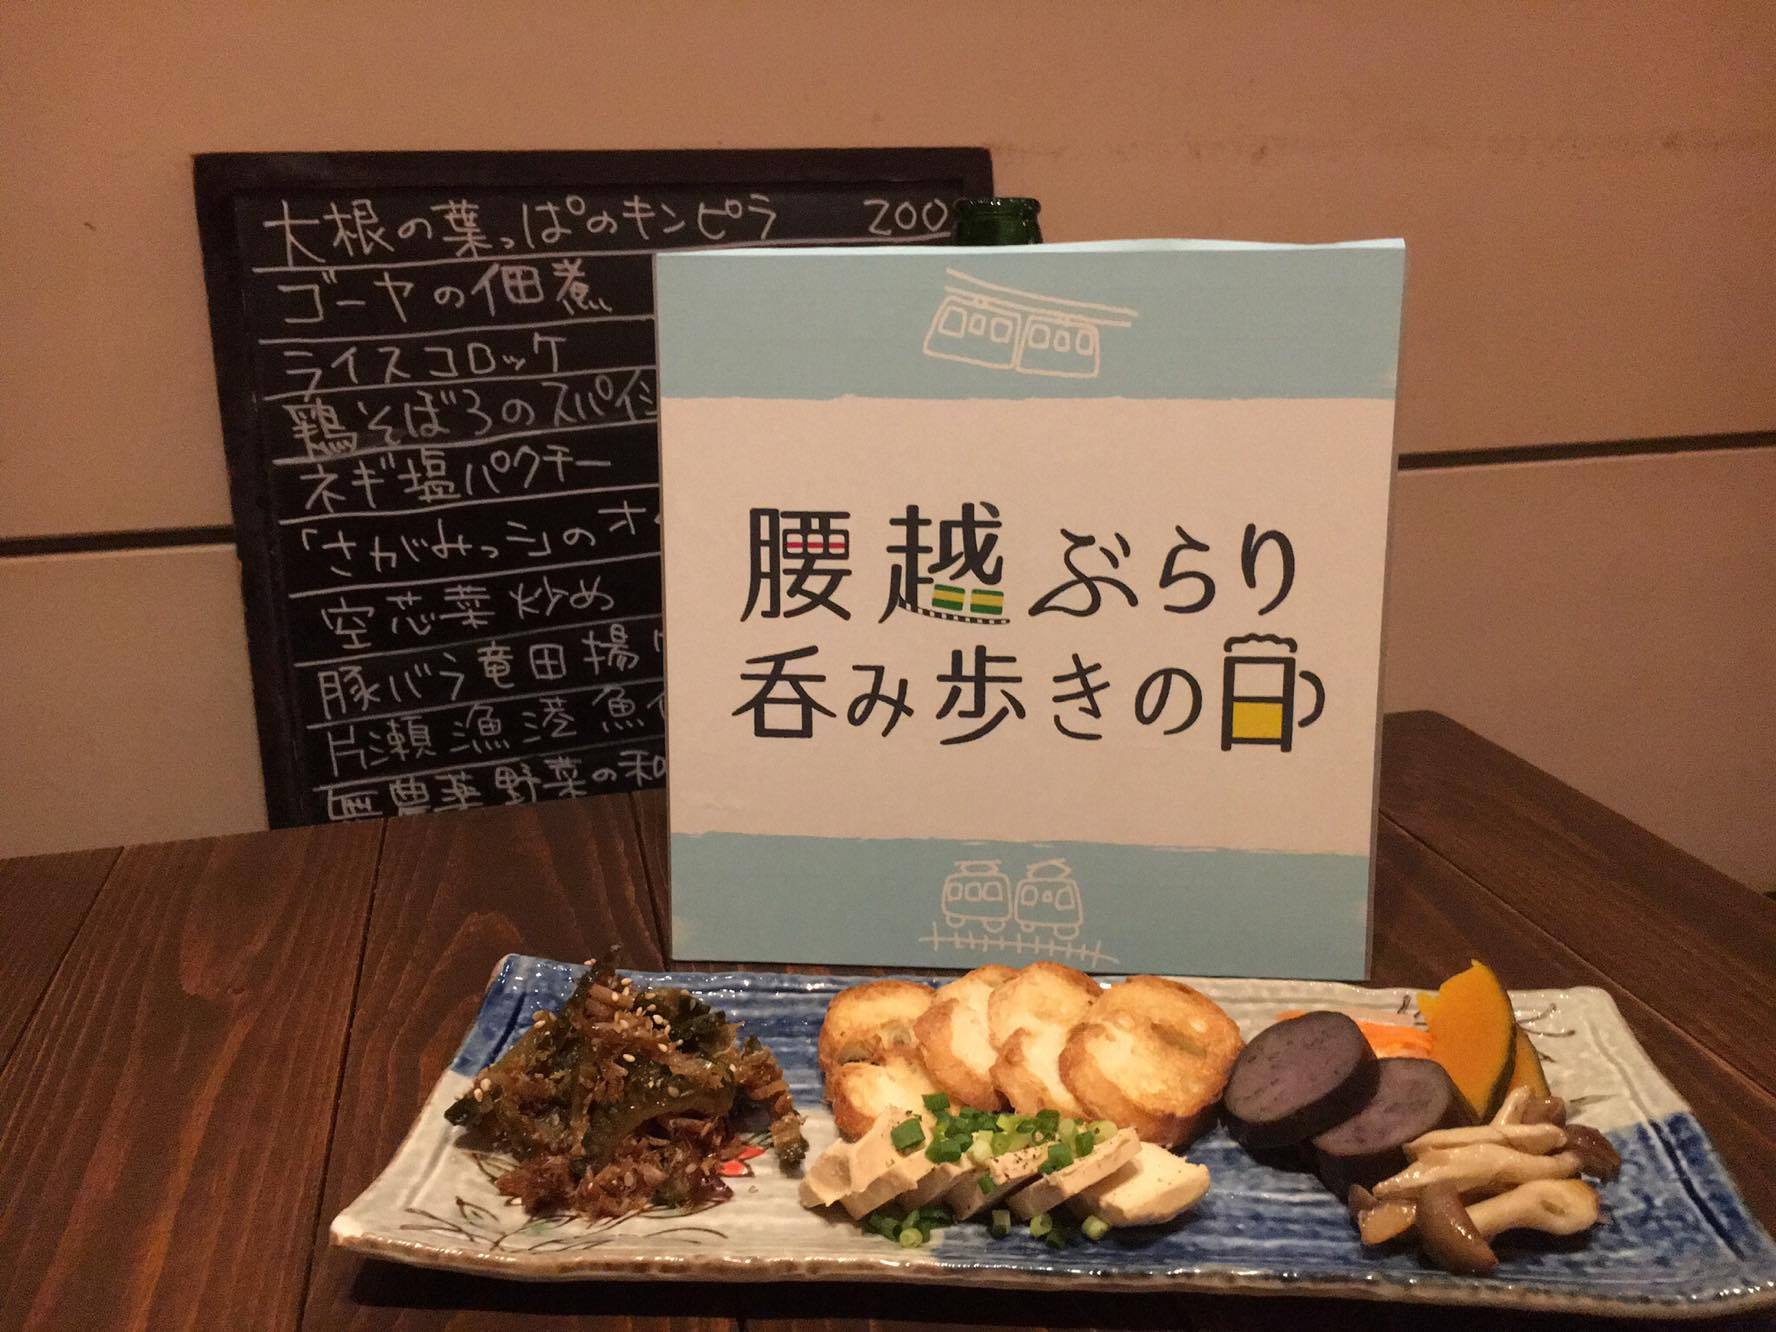 大根の葉っぱのキンピラ 200
ゴーヤの佃煮
ライスコロッケ
鶏そぼろのスパイシ
ネギ塩パクチー
「さがみっこ」のオ
空芯菜炒め
豚バラ竜田揚
片瀬漁港魚
無農薬野菜の和
腰越ぶらり
呑み歩きの日